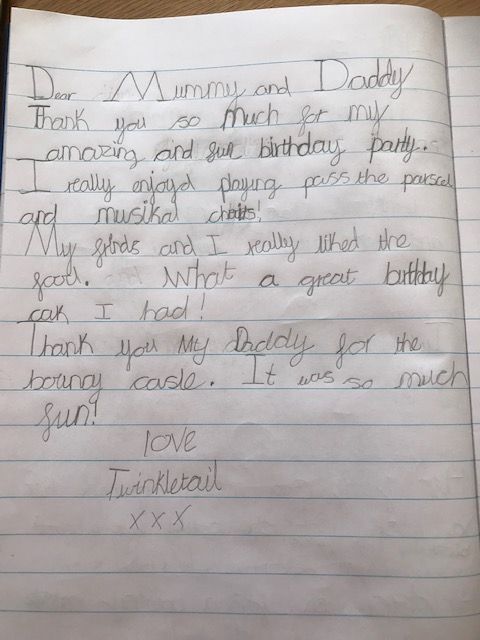 Dear Mummy and Daddy
Thank you so much for my
amazing and fun birthday party.
I really enjoyd playing pass the parscel
and musikal chairs!
My frinds and I really liked the
food. What a great birthday
cak I had!
Thank you My Daddy for the
bouncy casle. It was so much
fun!
love
Twinkletail
x x x